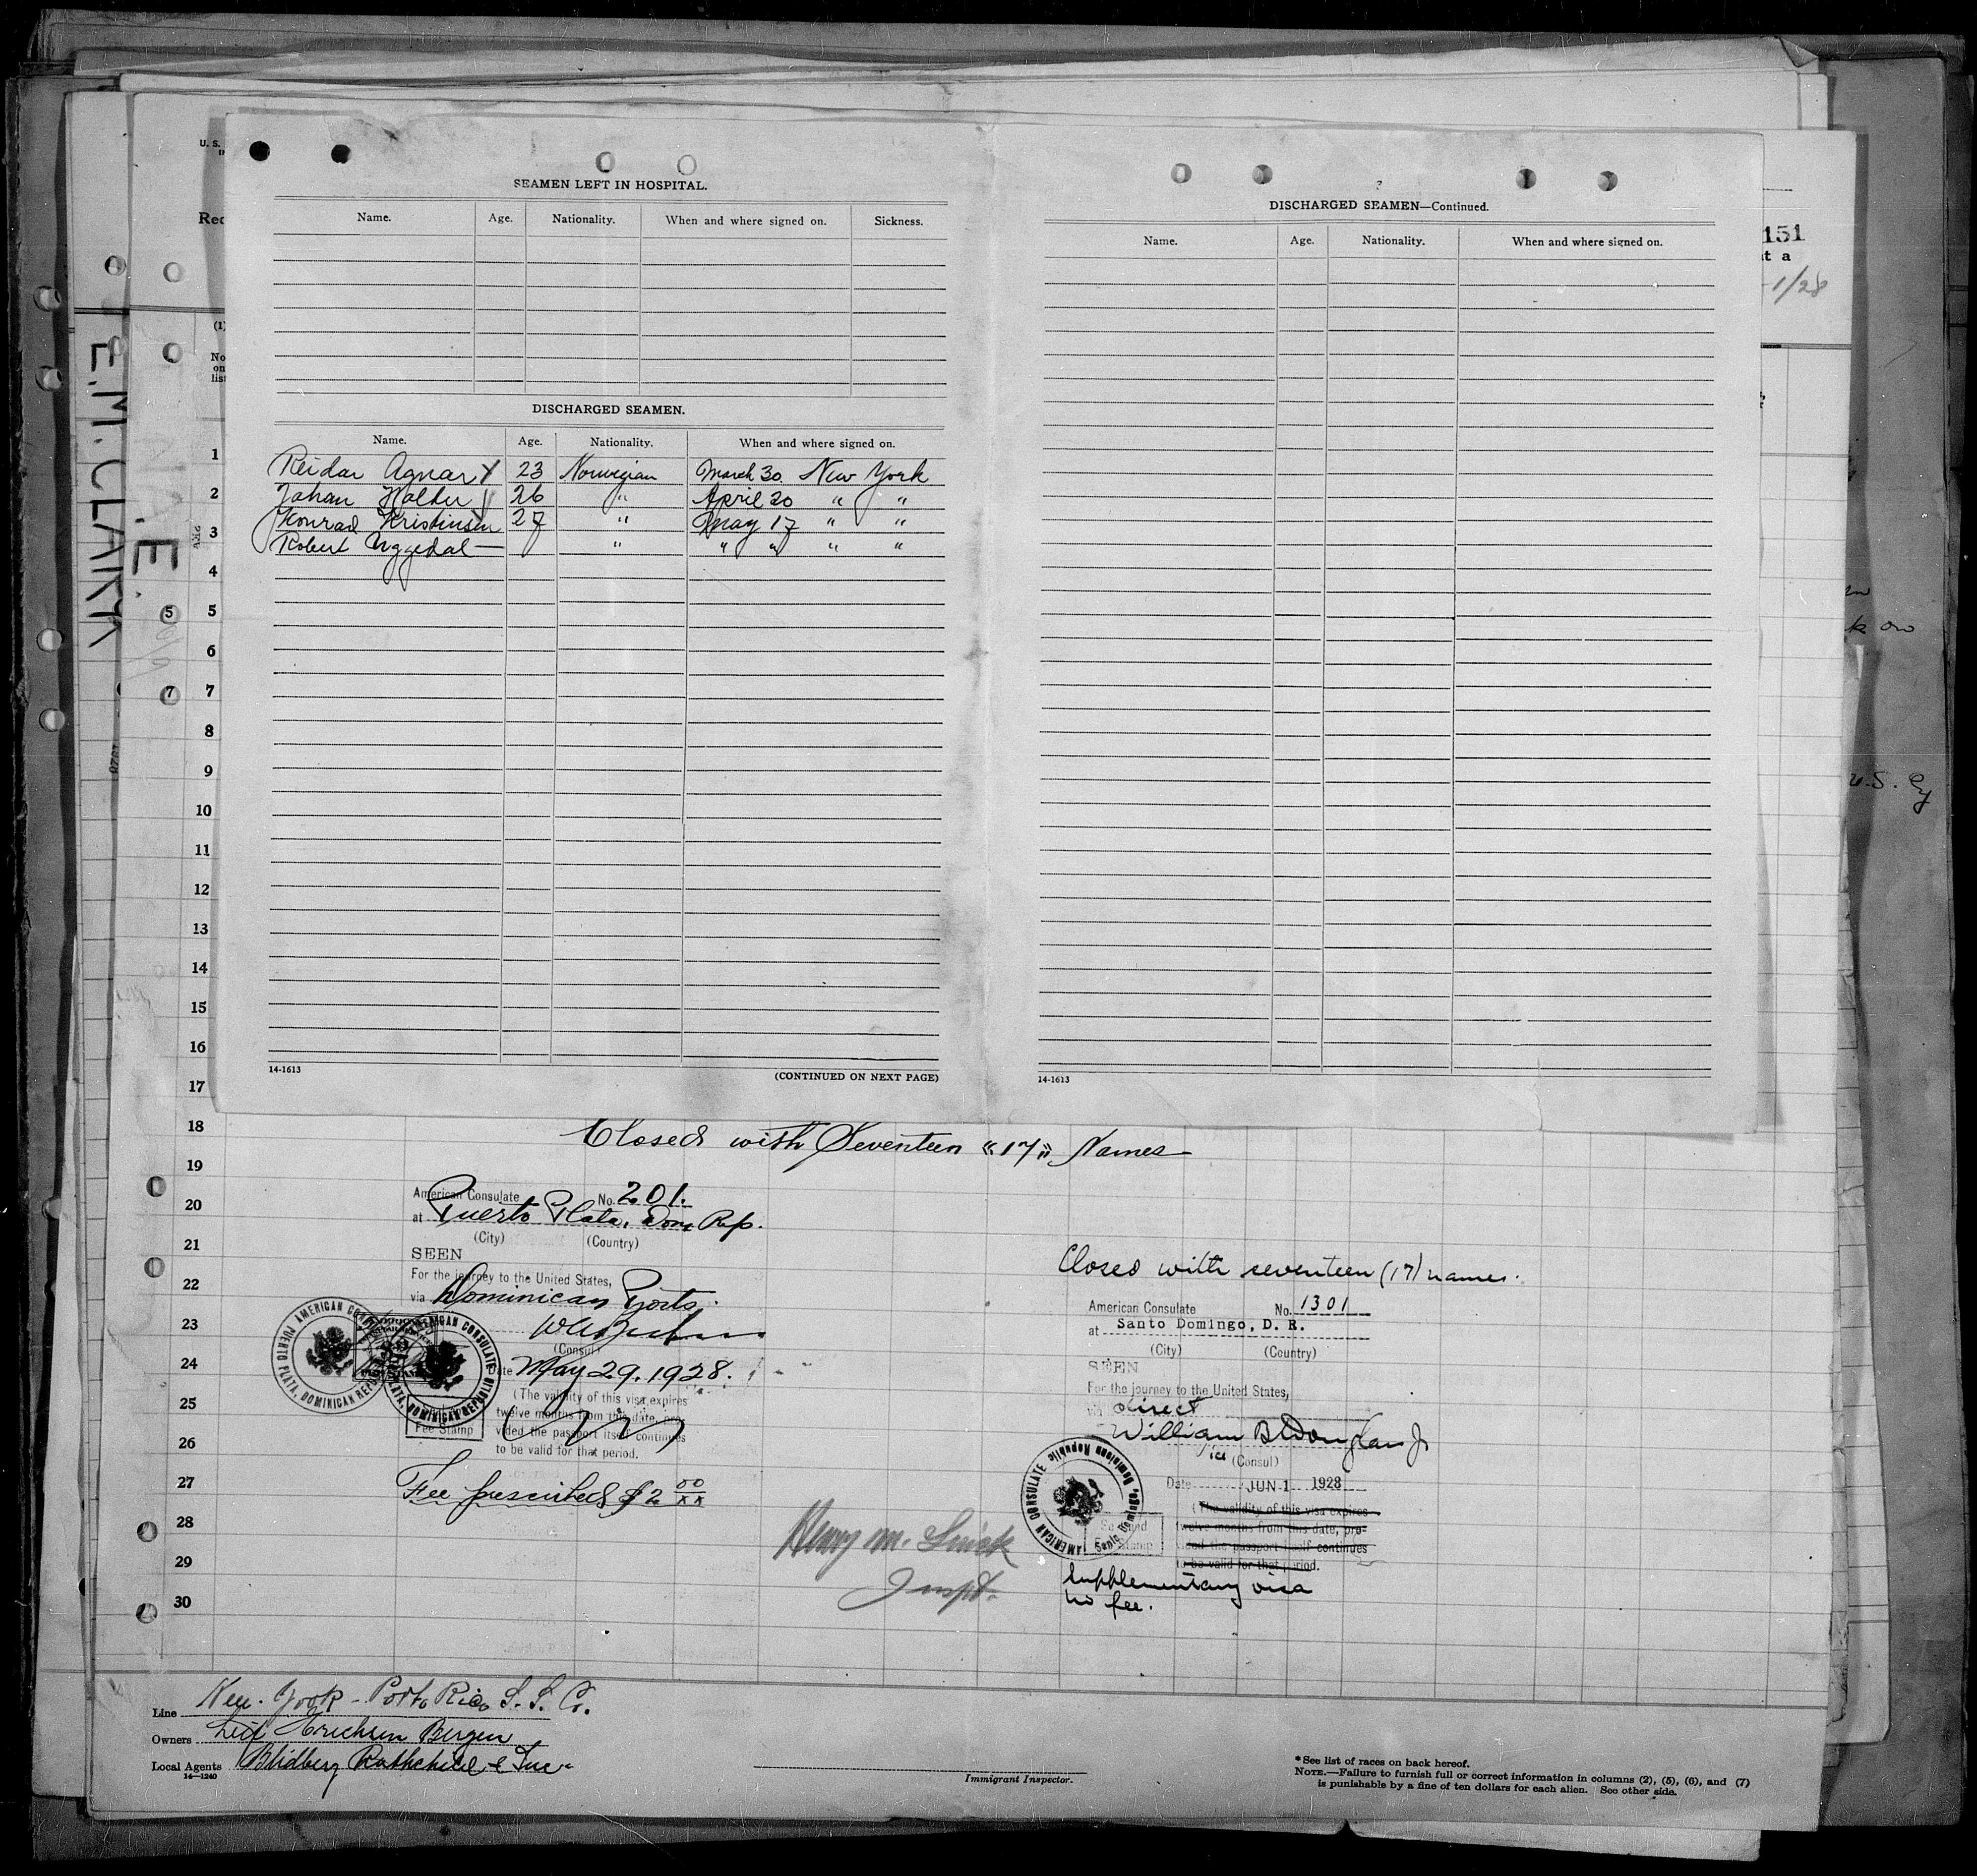 U. S.
SEAMEN LEFT IN HOSPITAL.
Name. Age. Nationality. When and where signed on. Sickness.
DISCHARGED SEAMEN.
Name. Age. Nationality. When and where signed on.
Reidar Agnar 23 Norwegian March 30. New York
Johan 26 " April 20 " "
Konrad Kristinsen 27 " May 17 " "
Robert Uggedal — " " " " "
14-1613 (CONTINUED ON NEXT PAGE)
DISCHARGED SEAMEN—Continued.
Name. Age. Nationality. When and where signed on.
14-1613
151
t a
1/28
Rec
(1)
No
on
list
1
2
3
4
5 5
6
7 7
8
9
10
11
12
13
14
15
16
17
18
19
20
21
22
23
24
25
26
27
28
29
30
E.M. CLARK
U.S.
Closed with Seventeen "17" Names
American Consulate No. 201.
at Puerto Plata, Dom. Rep.
(City) (Country)
SEEN
For the journey to the United States,
via Dominican Ports.
(Consul)
Date May 29. 1928.
(The validity of this visa expires
twelve months from this date, pro-
vided the passport itself continues
to be valid for that period.
Fee Stamp
AMERICAN CONSULATE PUERTO PLATA, DOMINICAN REPUBLIC
AMERICAN CONSULATE PUERTO PLATA, DOMINICAN REPUBLIC
Fee prescribed $2 00/xx
Closed with seventeen (17) names.
American Consulate No. 1301
at Santo Domingo, D. R.
(City) (Country)
SEEN
For the journey to the United States,
via direct
William B Douglas Jr
Vice (Consul)
Date JUN 1 1928
(The validity of this visa expires
twelve months from this date, pro-
vided the passport itself continues
to be valid for that period.
AMERICAN CONSULATE Santo Domingo, Dominican Republic
Supplementary visa
no fee.
Henry M.
Inspt.
Line New York - Porto Rico S. S. Co.
Owners Leif Erichsen Bergen
Local Agents Blidberg Rothchild & Inc.
14—1240
Immigrant Inspector.
*See list of races on back hereof.
NOTE.—Failure to furnish full or correct information in columns (2), (5), (6), and (7)
is punishable by a fine of ten dollars for each alien. See other side.